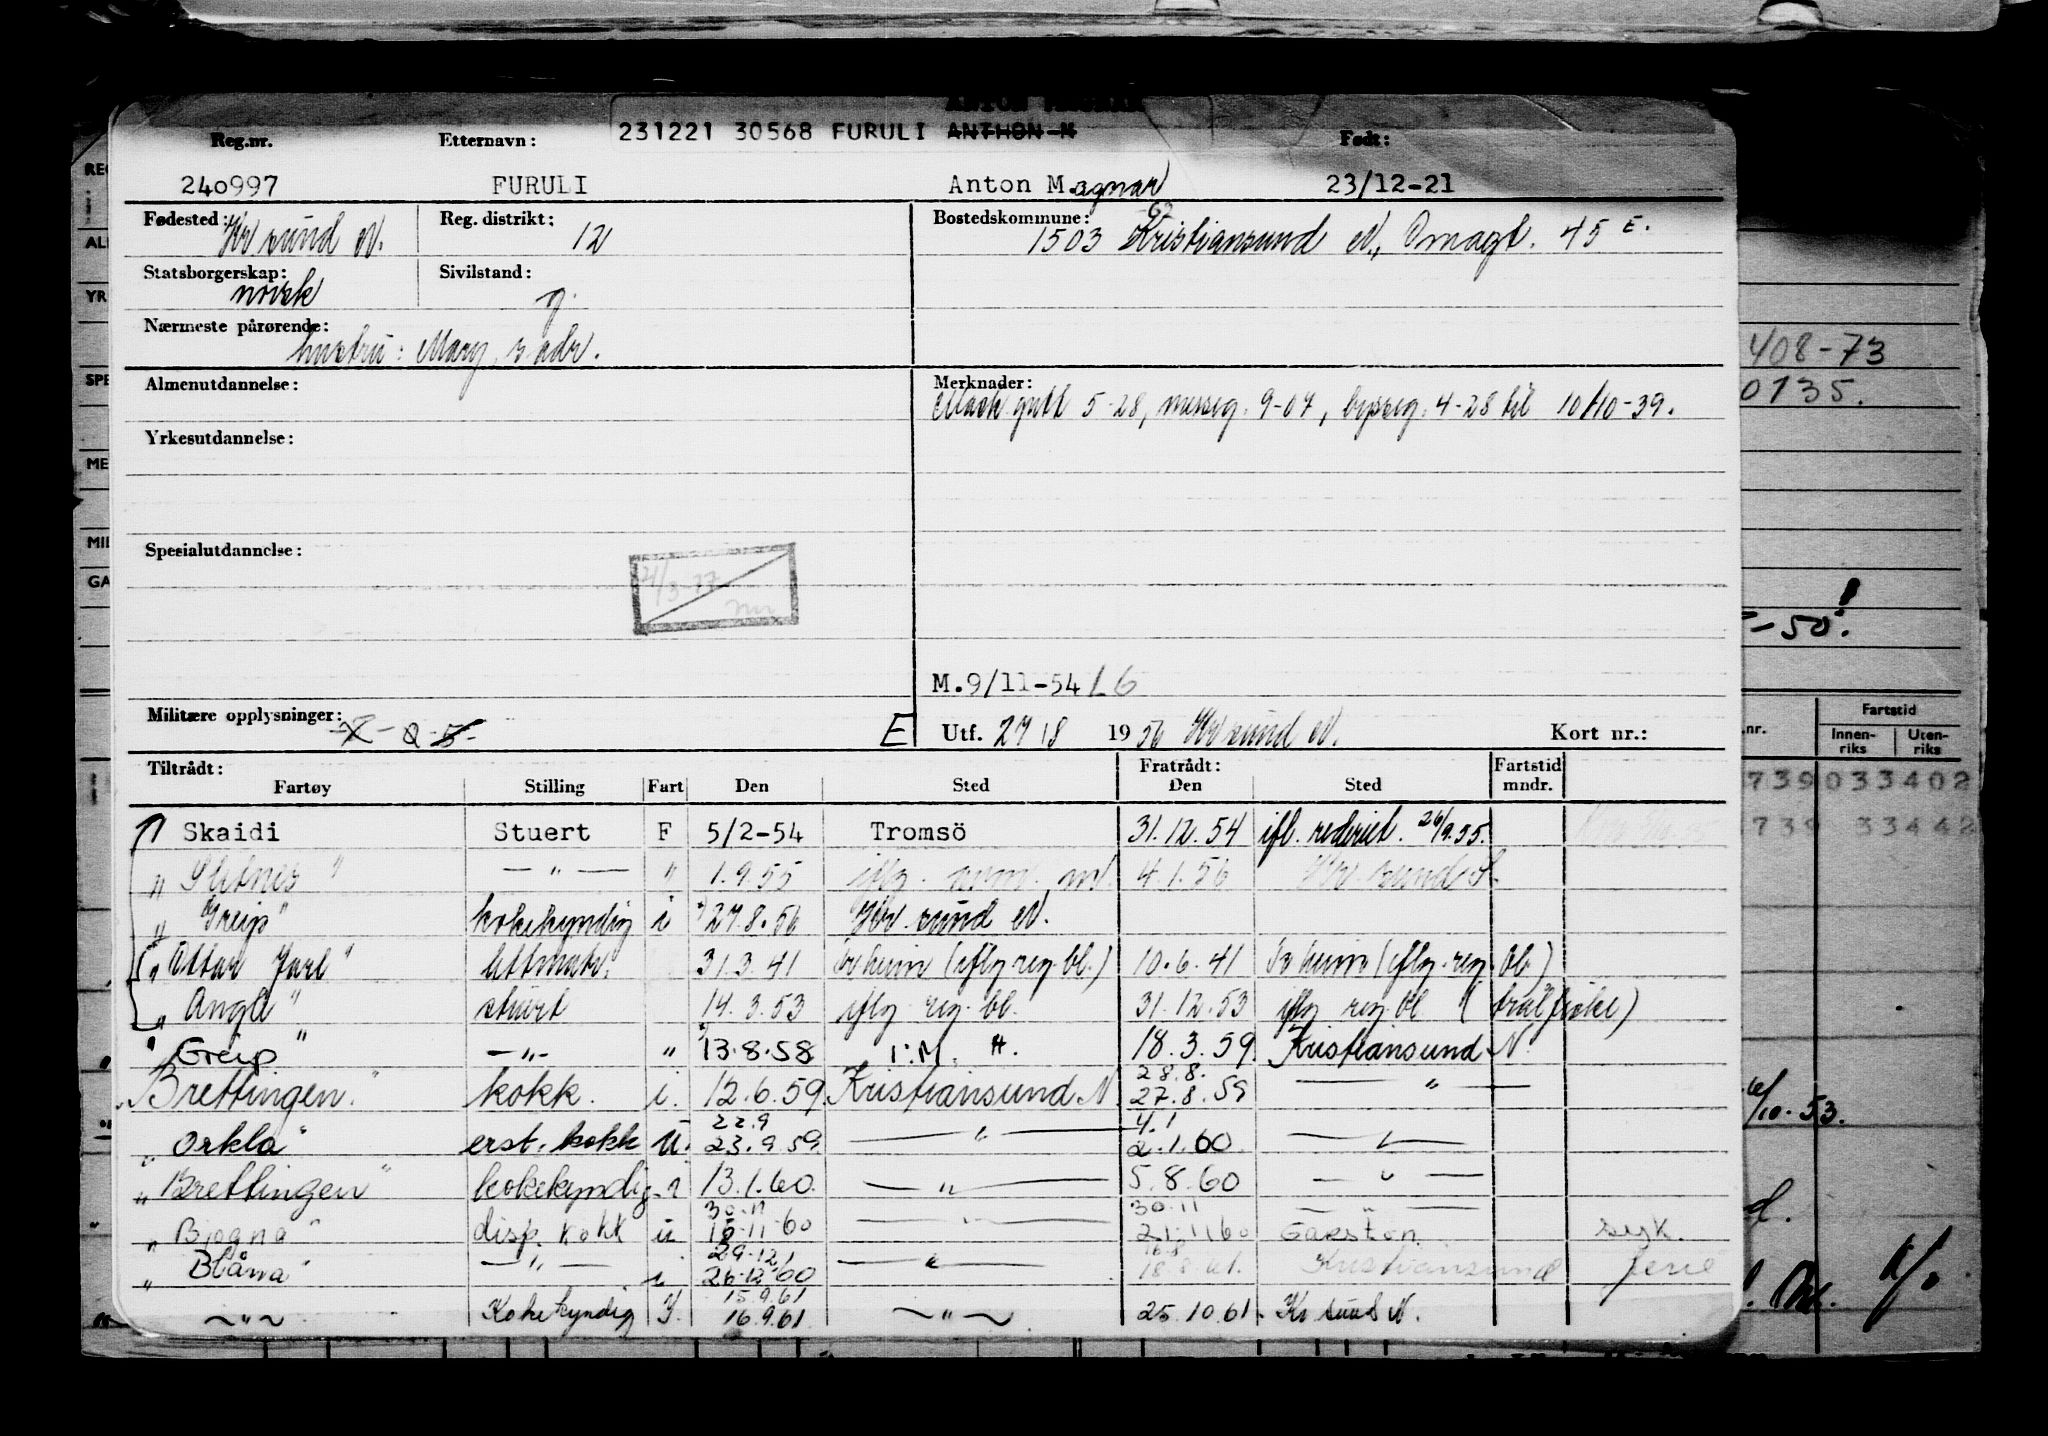 231221 30568 FURULI ANTHON M
Reg.nr. Etternavn: Født:
240997 FURULI Anton Magnar 23/12-21
Fødested: Kr sund N. Reg. distrikt: 12 Bostedskommune: 1503 Kristiansund N, Omagt. 45 E.
Statsborgerskap: norsk Sivilstand: g.
Nærmeste pårørende: hustru: Mary, s. adr.
Almenutdannelse: Merknader: Mask gutt 5-28, messeg. 9-07, bysseg. 4-28 til 10/10-39.
Yrkesutdannelse:
Spesialutdannelse:
21/3-77
M.9/11-54 LG
Militære opplysninger: E Utf. 27/8 1956 Kr sund N. Kort nr.:
Tiltrådt: Fratrådt: Fartstid
Fartøy Stilling Fart Den Sted Den Sted mndr.
Skaidi Stuert F 5/2-54 Tromsö 31.12.54 ifl. rederiet. 26/9.55.
" — " — " 1.9.55 4.1.56 Kr. sund
" Greip" kokekyndig i 27.8.56 Kr. sund N.
" Ottar Jarl" 31.3.41 Tr heim (iflg. reg. bl.) 10.6.41 Tr heim (iflg. reg. bl.)
" Anga" stuert 14.3.53 iflg reg. bl. 31.12.53 iflg reg. bl (trålfiske)
" Greip" — " — " 13.8.58 18.3.59 Kristiansund N.
28.8.
" Brettingen" kokk. i. 12.6.59 Kristiansund N 27.8.59 — " —
22.9 4.1
" Orkla" erst. kokk u. 23.9.59 — " — 2.1.60 — " —
" Brettingen" kokekyndig i 13.1.60 — " — 5.8.60 — " —
30.11 30.11 — " —
" disp. kokk u 15.11.60 — " — 21.11.60 Garston syk.
29.12 16.8
" Blåna" — " — i 26.12.60 — " — 18.8.61. Kristiansund ferie
15.9.61
— " — Kokekyndig I. 16.9.61 — " — 25.10.61 Kr sund N.
408-73
0735.
-50!
Fartstid
nr. Innen-riks Uten-riks
739 033402
1739 33442
/10.53.